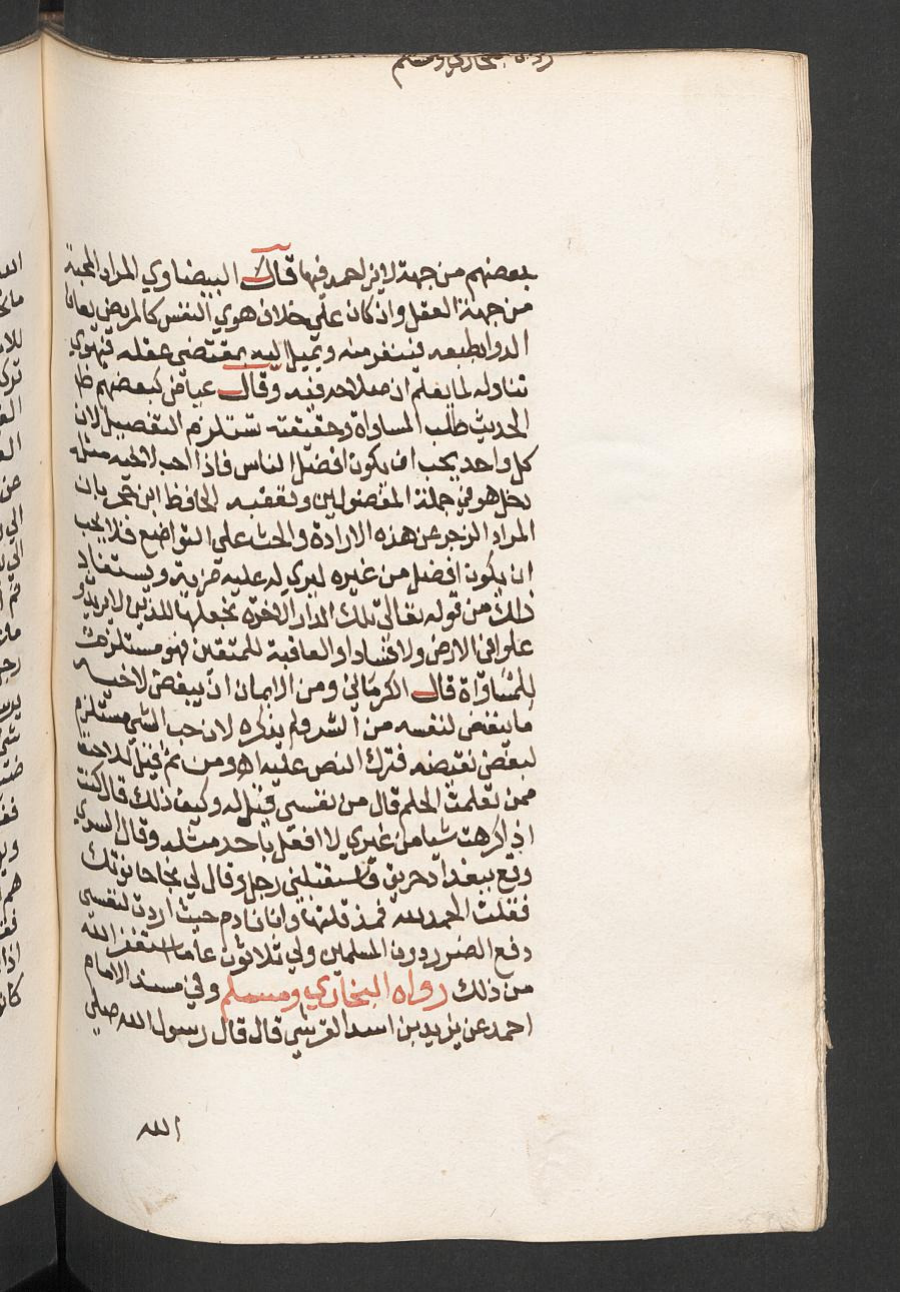 رواه البخاري ومسلم
بعضهم من جهة لا يزاحمه فيها قال البيضاوي المراد المحبة
من جهة العقل وان كان علي خلاف هوي النفس كالمريض يعاف
الدوا بطبعه فينفر منه ويميل اليه بمقتضي عقله فيهوي
تناوله لما يعلم ان صلاحه فيه وقال عياض كبعضهم ظا
الحديث طلب المساواة وحقيقته تستلزم التفضيل لان
كل واحد يحب ان يكون افضل الناس فاذا احب لاخيه مثله
دخل هو في جملة المفضولين وتعقبه الحافظ ابن حجر بان
المراد الزجر عن هذه الارادة والحث علي التواضع فلا يحب
ان يكون افضل من غيره ليري له عليه مزية ويستفاد
ذلك من قوله تعالي تلك الدار الاخرة نجعلها للذين لا يريدو
علوا في الارض ولا فسادا والعاقبة للمتقين فهو مستلزم
للمساواة قال الكرماني ومن الايمان ان يبغض لاخيه
ما يبغض لنفسه من الشر ولم يذكره لان حب الشي مستلزم
لبغض نقيضه فترك النص عليه اه ومن ثم قيل للاحنف
ممن تعلمت الحلم قال من نفسي قيل له وكيف ذلك قال كنت
اذا كرهت شيا من غيري لا افعل باحد مثله وقال السري
وقع ببغداد حريق فاستقبلني رجل وقال لي نجا حانوتك
فقلت الحمد لله فمذ قلتها وانا نادم حيث اردت لنفسي
دفع الضرر دون المسلمين ولي ثلاثون عاما استغفر الله
من ذلك رواه البخاري ومسلم وفي مسند الامام
احمد عن يزيد بن اسد القرشي قال قال رسول الله صلي
الله